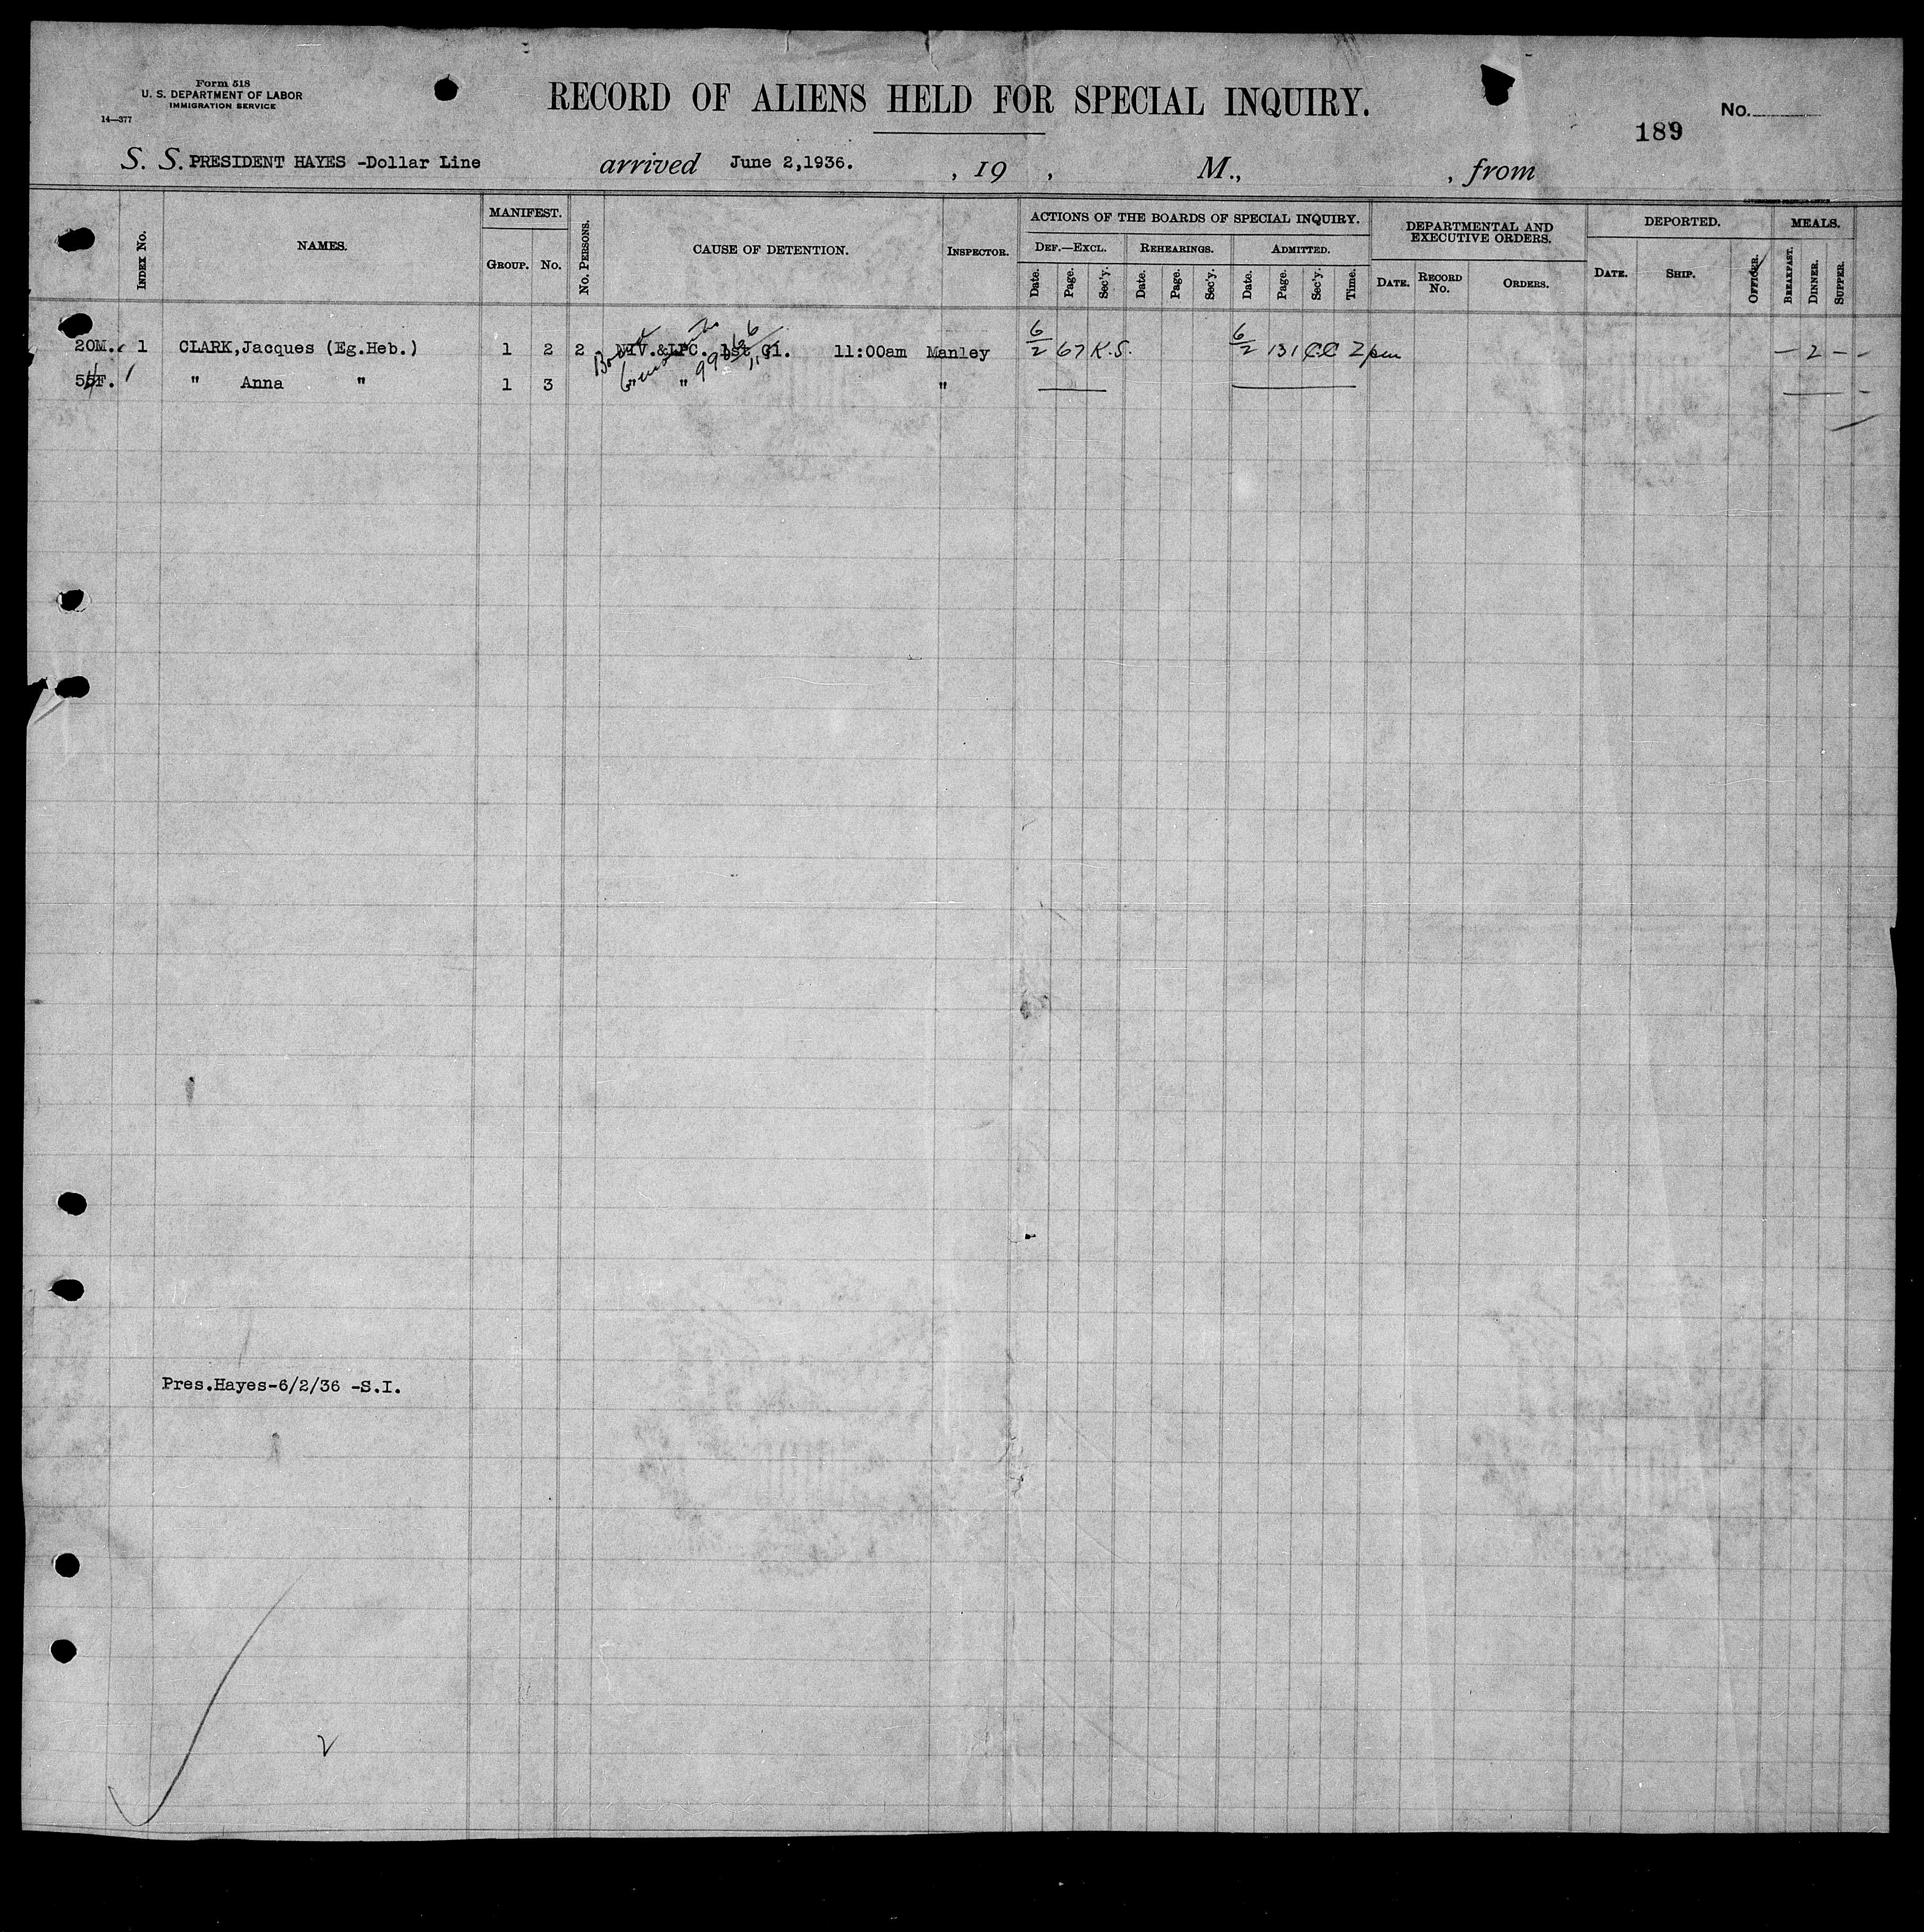 Form 518
U. S. DEPARTMENT OF LABOR
IMMIGRATION SERVICE
14—377
RECORD OF ALIENS HELD FOR SPECIAL INQUIRY.
No.
189
S. S. PRESIDENT HAYES -Dollar Line arrived June 2,1936. , 19 , M., , from
INDEX No.
NAMES.
MANIFEST.
GROUP. No.
No. PERSONS.
CAUSE OF DETENTION.
INSPECTOR.
ACTIONS OF THE BOARDS OF SPECIAL INQUIRY.
DEF.—EXCL. REHEARINGS. ADMITTED.
Date. Page. Sec'y. Date. Page. Sec'y. Date. Page. Sec'y. Time.
DEPARTMENTAL AND
EXECUTIVE ORDERS.
DATE. RECORD No. ORDERS.
DEPORTED.
DATE. SHIP. OFFICER.
MEALS.
BREAKFAST. DINNER. SUPPER.
20M. 1 CLARK,Jacques (Eg.Heb.) 1 2 2 NIV.&LPC. 1st Cl. 11:00am Manley 6/2 67 K.S. 6/2 131 CC 2pm — 2 — -
F. " Anna " 1 3 " "
Pres.Hayes-6/2/36 -S.I.
2